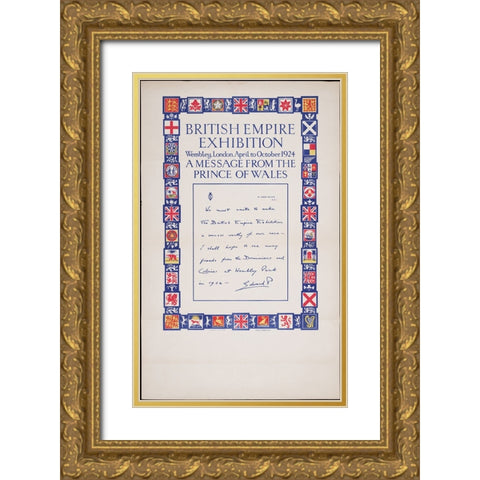 BRITISH EMPIRE
EXHIBITION
Wembley, London, April to October 1924
A MESSAGE FROM THE
PRINCE OF WALES
We must unite to make
The British Empire Exhibition
a success worthy of our race —
I shall hope to see many
friends from the Dominions and
Colonies at Wembley Park
in 1924 —
Edward P.